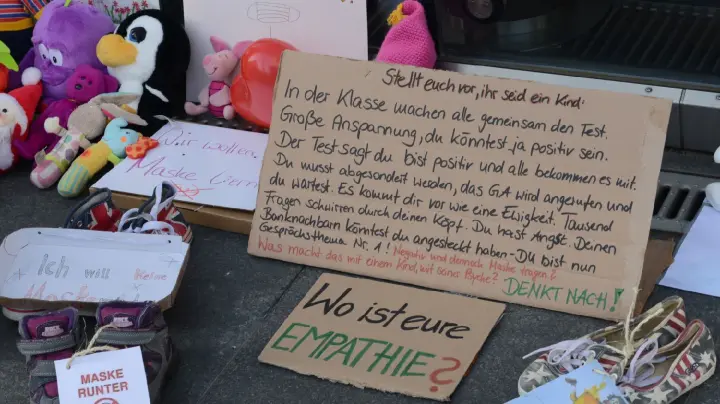 Stellt euch vor, ihr seid ein Kind:
In der Klasse machen alle gemeinsam den Test.
Große Anspannung, du könntest ja positiv sein.
Der Test sagt du bist positiv und alle bekommen es mit.
Du musst abgesondert werden, das GA wird angerufen und
du wartest. Es kommt dir vor wie eine Ewigkeit. Tausend
Fragen schwirren durch deinen Kopf. Du hast Angst. Deinen
Banknachbarn könntest du angesteckt haben - Du bist nun
Gesprächsthema Nr. 1! Negativ und dennoch Maske tragen?
Was macht das mit einem Kind, mit seiner Psyche? DENKT NACH!
Wo ist eure
EMPATHIE?
Wir wollen
Maske
Ich will keine
MASKE
RUNTER